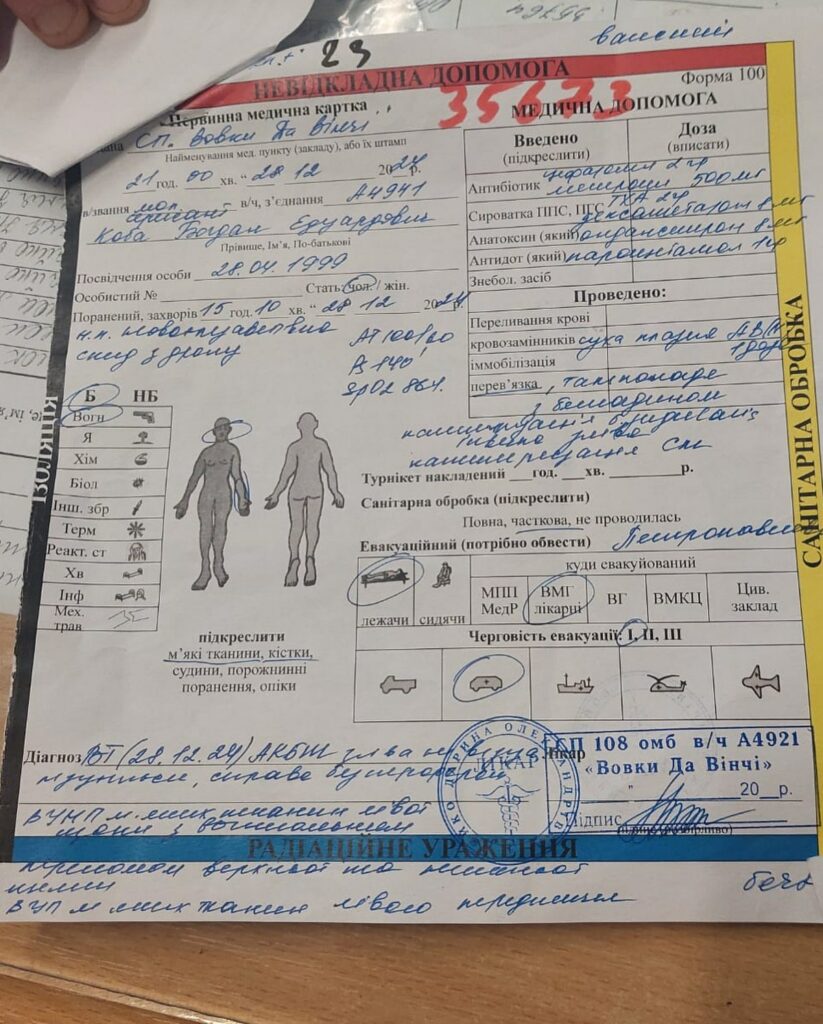 23
важкий
НЕВІДКЛАДНА ДОПОМОГА
Форма 100
35673
Первинна медична картка
СП. Вовки Да Вінчі
Найменування мед. пункту (закладу), або їх штамп
21 год. 00 хв. "28 12 2024
в/звання мол. сержант в/ч, з'єднання А4941
Коба Богдан Едуардович
Прівище, Ім'я, По-батькові
28.04.1999
Посвідчення особи
Особистий № Стать: чол. / жін.
Поранений, захворів 15 год. 10 хв. "28 12 2024
н.п.
скид з дрону
АТ 100/60
Ps 140'
SpO2 86%
МЕДИЧНА ДОПОМОГА
Введено (підкреслити)
Доза (вписати)
Антибіотик 2 гр
500 мг
ТХА 2 гр
Сироватка ППС, ПГС дексаметазон 8 мг
Анатоксин (який) ондансетрон 8 мг
Антидот (який) парацетамол 1 гр
Знебол. засіб
Проведено:
Переливання крові
кровозамінників суха плазма АВ(IV)
1 доза
іммобілізація
перев'язка, тампонада
з
Турнікет накладений ___год. ___хв. ___р.
Санітарна обробка (підкреслити)
Повна, часткова, не проводилась
Евакуаційний (потрібно обвести)
куди евакуйований
лежачи
сидячи
МПП МедР
ВМГ лікарні
ВГ
ВМКЦ
Цив. заклад
Черговість евакуації: I, II, III
ІЗОЛЯЦІЯ
Б НБ
Вогн
Я
Хім
Біол
Інш. збр
Терм
Реакт. ст
Хв
Інф
Мех. трав
підкреслити
м'які тканини, кістки,
судини, порожнинні
поранення, опіки
САНІТАРНА ОБРОБКА
Діагноз ВТ (28.12.24) АКБШ
ВУНП м'яких тканин лівої
щоки з вогнепальним
Лікар
ЛІКАР
СП 108 омб в/ч А4921
«Вовки Да Вінчі»
20__р.
Підпис
РАДІАЦІЙНЕ УРАЖЕННЯ
переломом верхньої та нижньої
щелепи
м'яких тканин лівого передпліччя